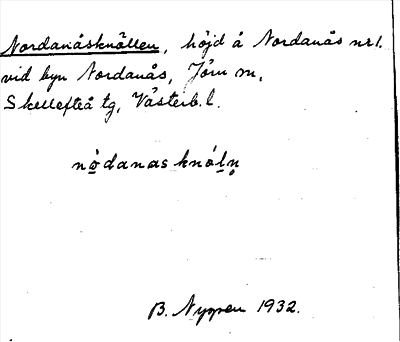 Nordanåsknöllen, höjd å Nordanås nr 1.
vid byn Nordanås, Jörn sn,
Skellefteå tg, Västerb. l.
nò̱danasknól̲n̥
B. Nygren 1932.